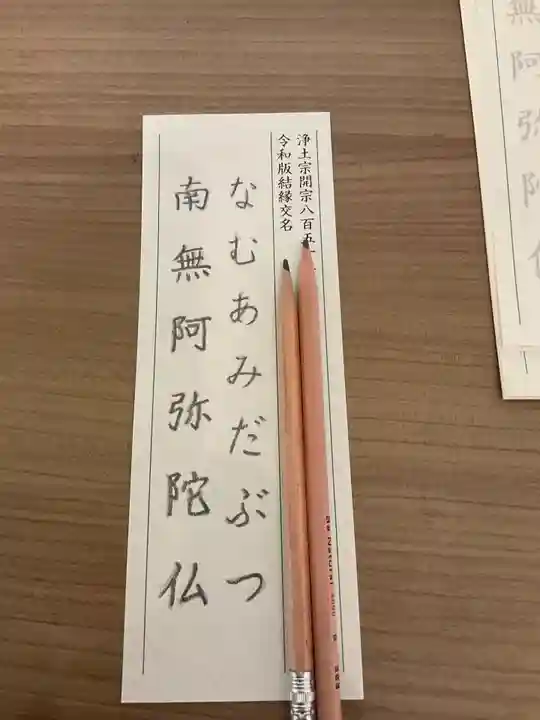 浄土宗開宗八百五十
令和版結縁交名
なむあみだぶつ
南無阿弥陀仏
無阿弥陀仏